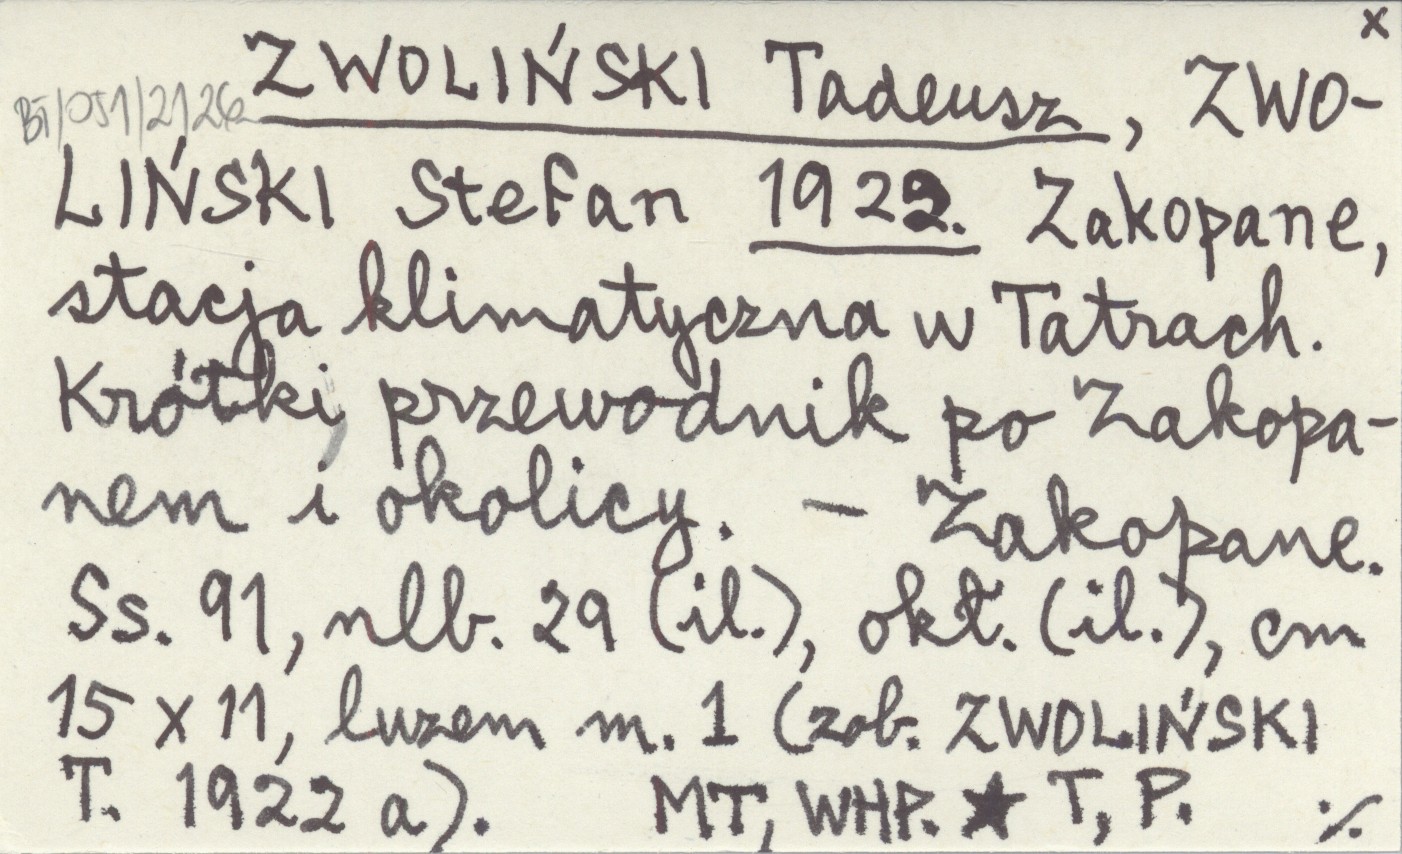 x
ZWOLIŃSKI Tadeusz, ZWO-
BT/051/2126
LIŃSKI Stefan 1922. Zakopane,
stacja klimatyczna w Tatrach.
Krótki przewodnik po Zakopa-
nem i okolicy. — Zakopane.
Ss. 91, nlb. 29 (il.), okł. (il.), cm
15 x 11, luzem m. 1 (zob. ZWOLIŃSKI
T. 1922 a). MT, WHP. ★ T, P. ·/.